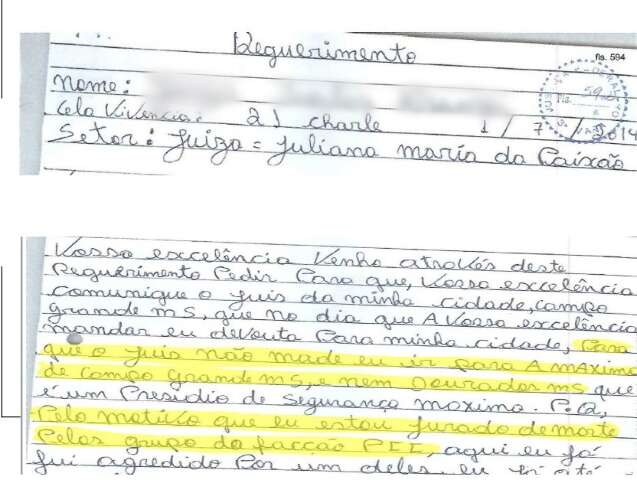 Requerimento
fls. 594
Nome:
Cela Vivencia: 21 charle 1 / 7 / 2014
Setor: Juiza = Juliana maria da Paixão
Vossa excelência Venho atravéis deste
Requerimento Pedir Para que, Vossa excelência
Comunique o juis da minha cidade, campo
grande ms, que no dia que A Vossa excelência
mandar eu devouta Para minha cidade, Para
que o juis não made eu ir para A maxima
de campo grande ms, e nem Dourados ms que
é um Presidio de segurança maxima. P.Q,
Pelo motivo que eu estou jurado de morte
Pelos grupo da facção PCC, aqui eu já
fui agredido Por um deles, eu até